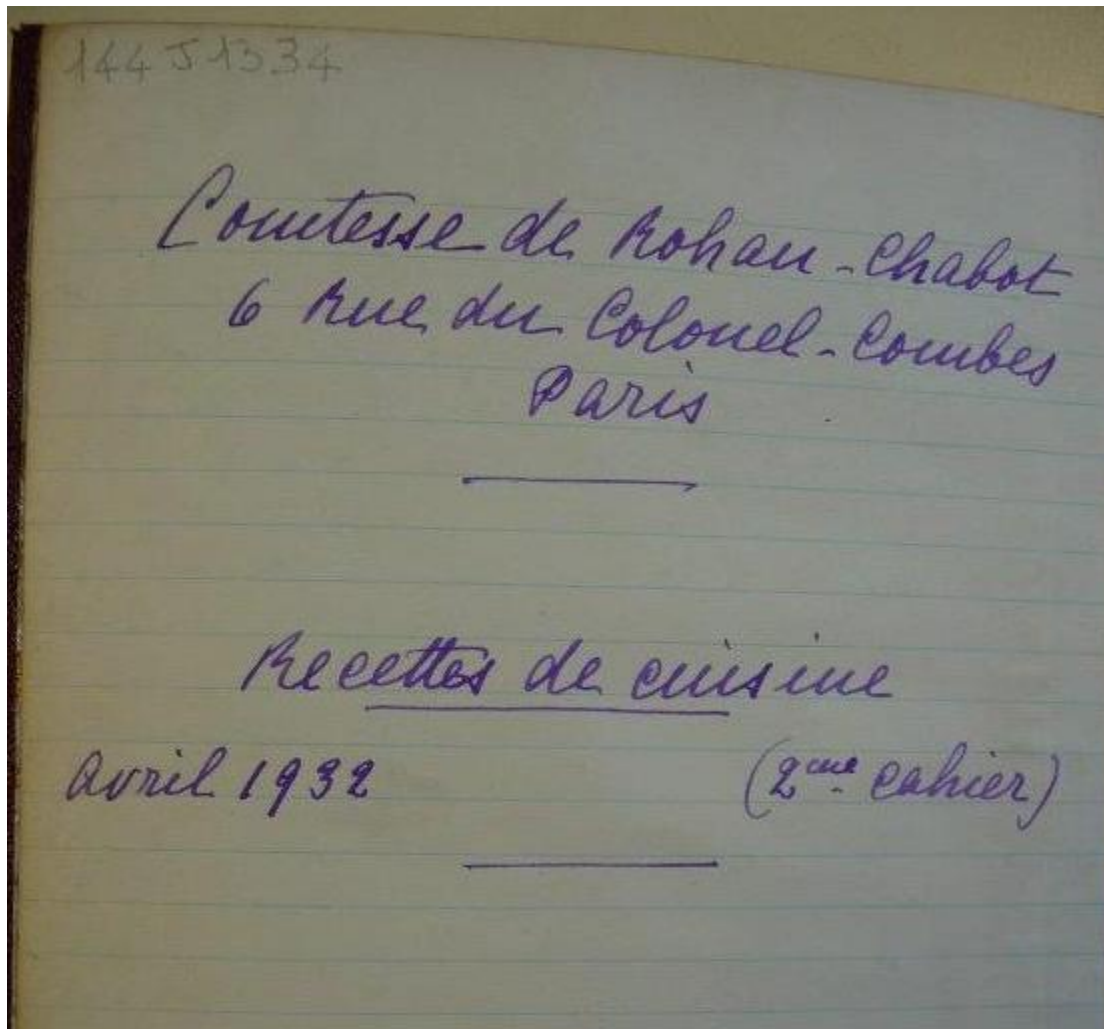 144 J 1334
Comtesse de Rohan-Chabot
6 Rue du Colonel-Combes
Paris
Recettes de cuisine
avril 1932 (2eme cahier)